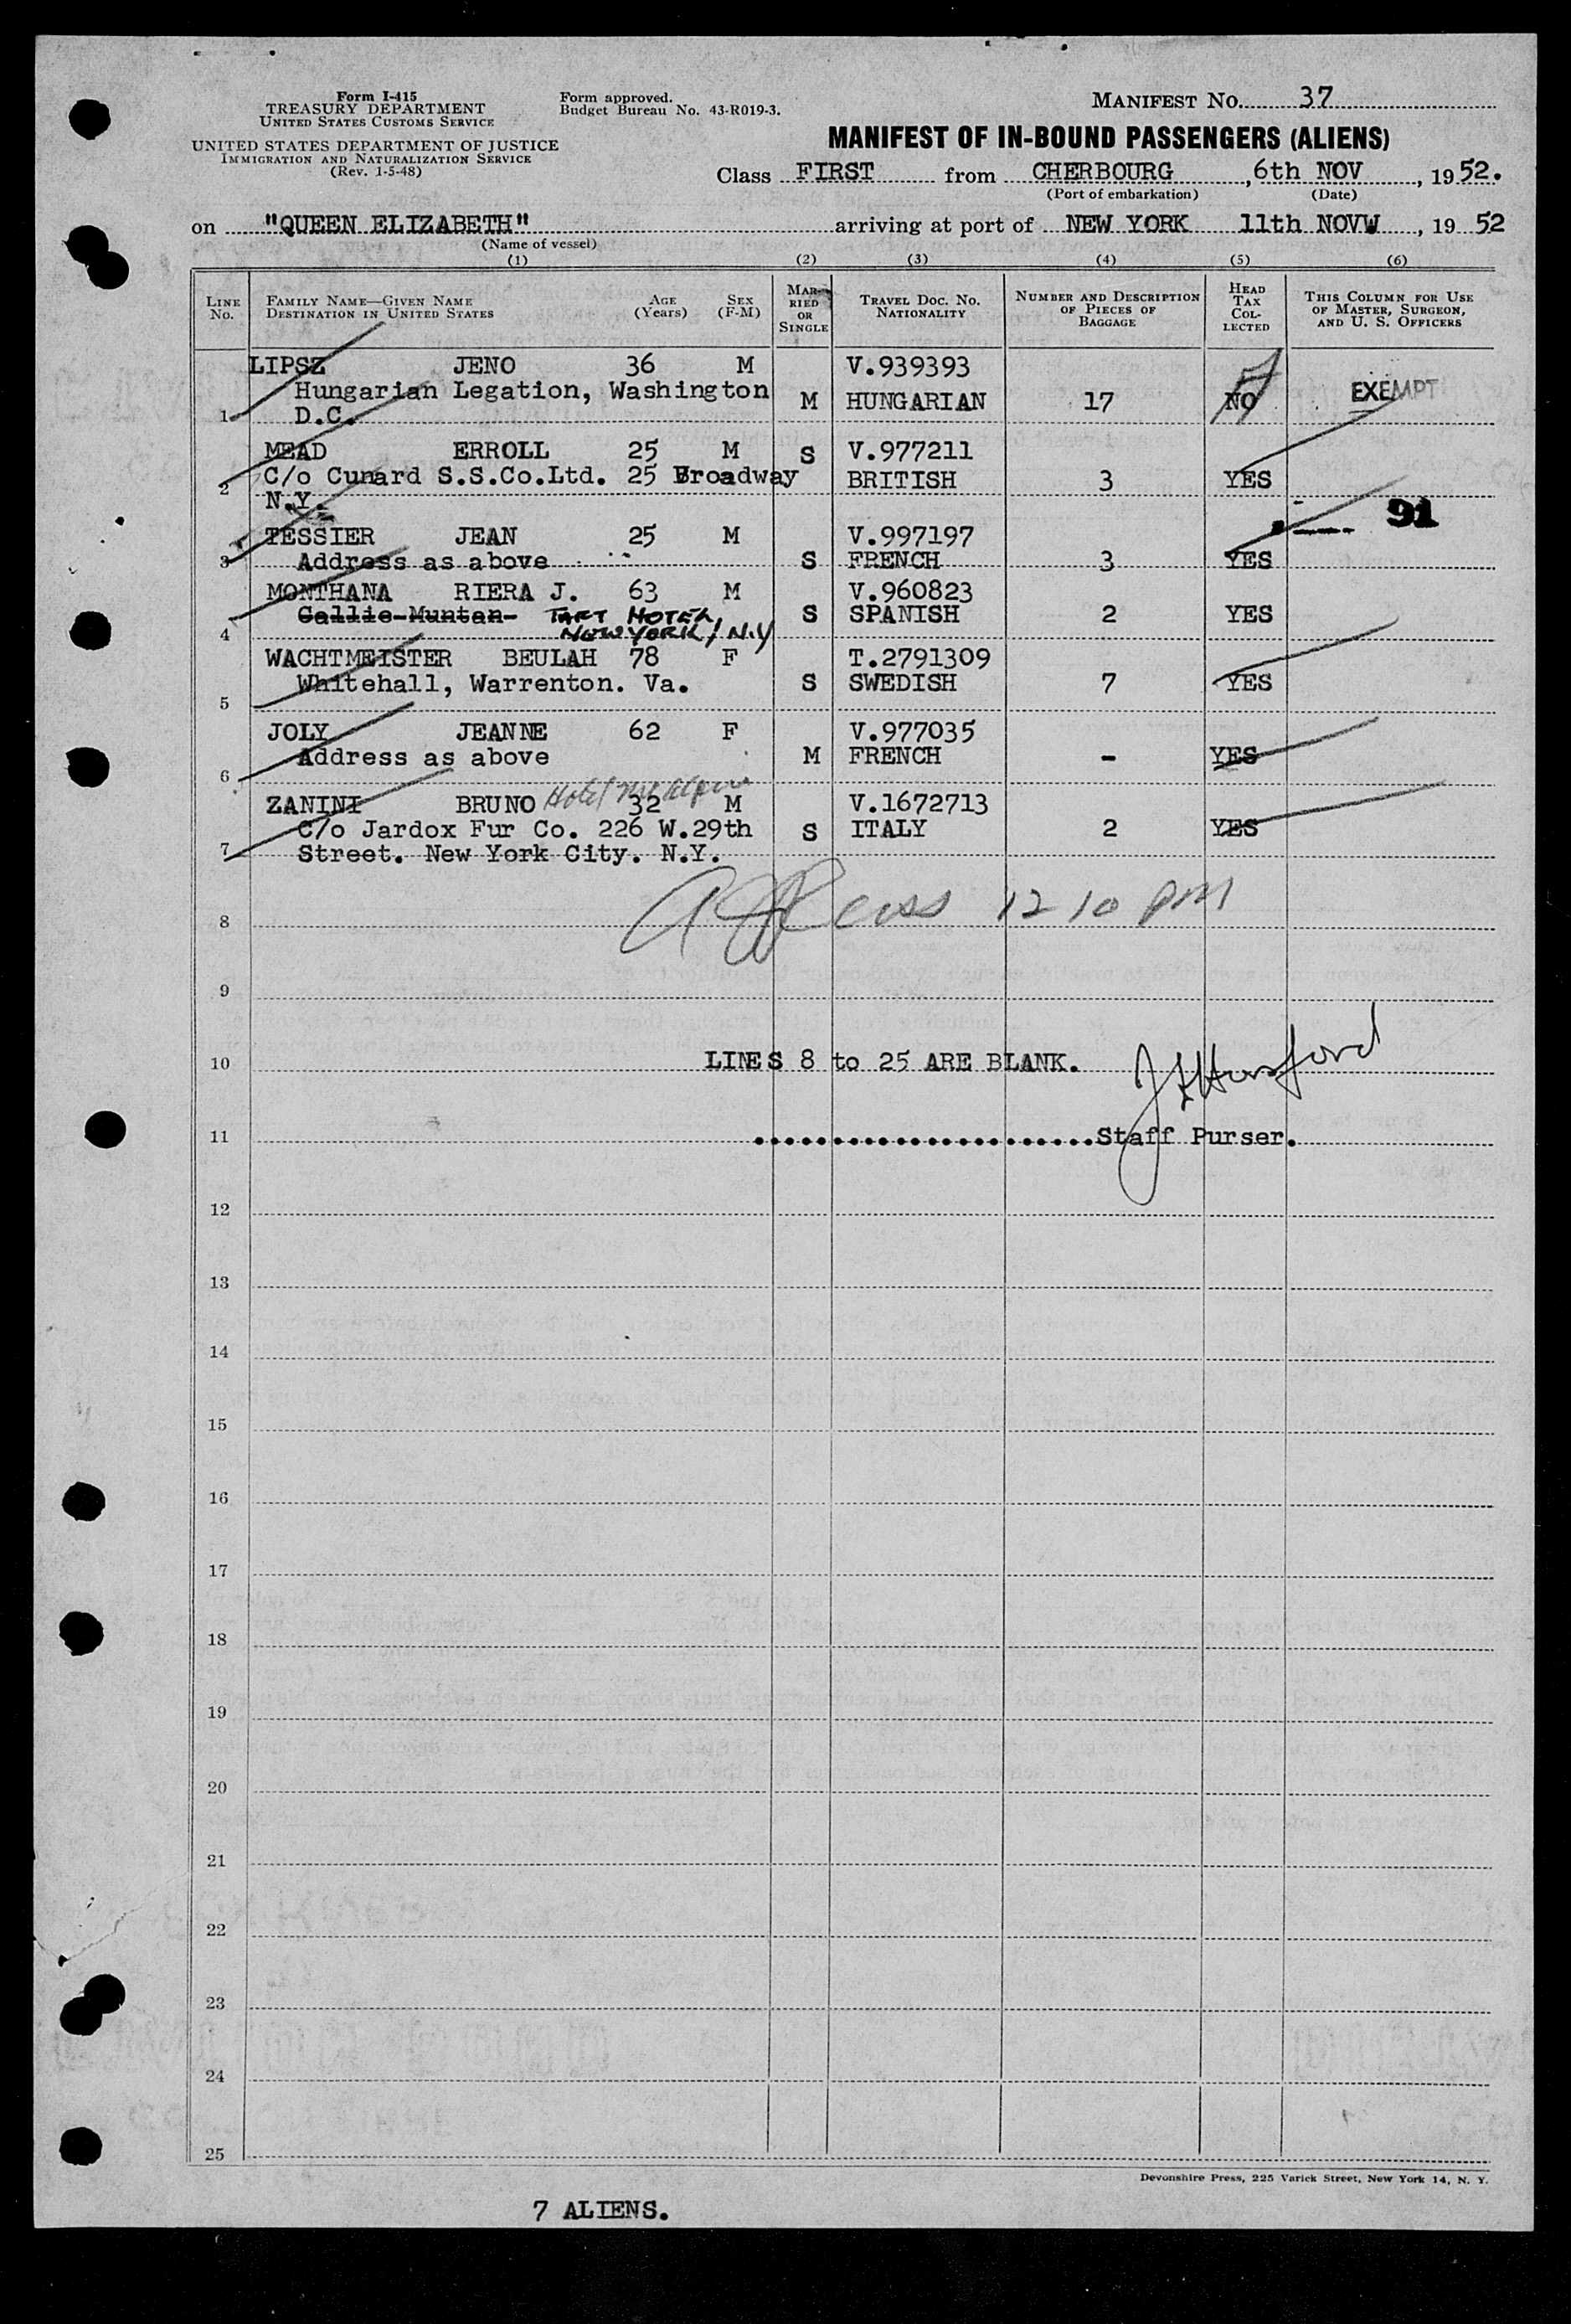 Form I-415
TREASURY DEPARTMENT
UNITED STATES CUSTOMS SERVICE
UNITED STATES DEPARTMENT OF JUSTICE
IMMIGRATION AND NATURALIZATION SERVICE
(Rev. 1-5-48)
Form approved.
Budget Bureau No. 43-R019-3.
MANIFEST NO. 37
MANIFEST OF IN-BOUND PASSENGERS (ALIENS)
Class FIRST from CHERBOURG, 6th NOV, 1952.
(Port of embarkation) (Date)
on "QUEEN ELIZABETH" arriving at port of NEW YORK 11th NOVW, 19 52
(Name of vessel)
(1) (2) (3) (4) (5) (6)
LINE NO.
FAMILY NAME—GIVEN NAME
DESTINATION IN UNITED STATES
AGE (Years)
SEX (F-M)
MARRIED OR SINGLE
TRAVEL DOC. NO.
NATIONALITY
NUMBER AND DESCRIPTION OF PIECES OF BAGGAGE
HEAD TAX COLLECTED
THIS COLUMN FOR USE OF MASTER, SURGEON, AND U. S. OFFICERS
LIPSZ JENO 36 M V.939393
Hungarian Legation, Washington
1 D.C. M HUNGARIAN 17 NO EXEMPT
MEAD ERROLL 25 M S V.977211
2 C/o Cunard S.S.Co.Ltd. 25 Broadway BRITISH 3 YES
N.Y.
91
TESSIER JEAN 25 M V.997197
3 Address as above S FRENCH 3 YES
MONTHANA RIERA J. 63 M V.960823
Gallie-Muntan- TAFT HOTEL, S SPANISH 2 YES
4 NEW YORK, N.Y
WACHTMEISTER BEULAH 78 F T.2791309
Whitehall, Warrenton. Va. S SWEDISH 7 YES
5
JOLY JEANNE 62 F V.977035
Address as above M FRENCH - YES
6
Hotel McAlpin
ZANINI BRUNO 32 M V.1672713
C/o Jardox Fur Co. 226 W.29th S ITALY 2 YES
7 Street. New York City. N.Y.
12 10 PM
8
9
10 LINES 8 to 25 ARE BLANK.
11 Staff Purser.
12
13
14
15
16
17
18
19
20
21
22
23
24
25
Devonshire Press, 225 Varick Street, New York 14, N. Y.
7 ALIENS.